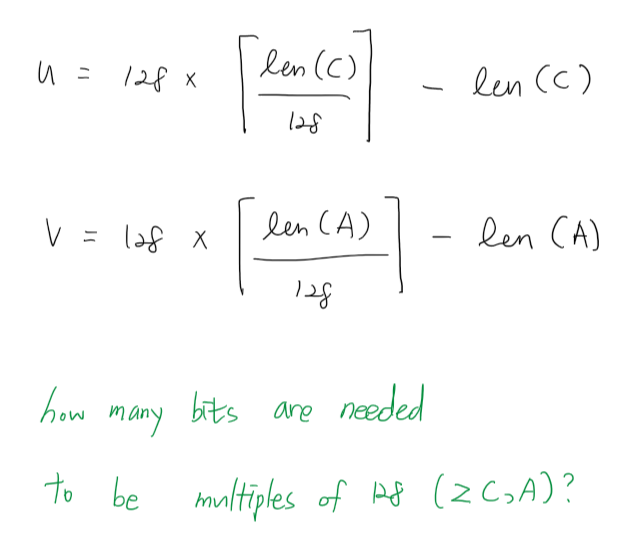 u = 128 × ⌈len(C)/128⌉ - len(C)
V = 128 × ⌈len(A)/128⌉ - len(A)
how many bits are needed
to be multiples of 128 (≥ C, A)?